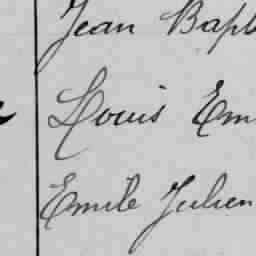 Jean Bapt
Louis Em
Emile Julien